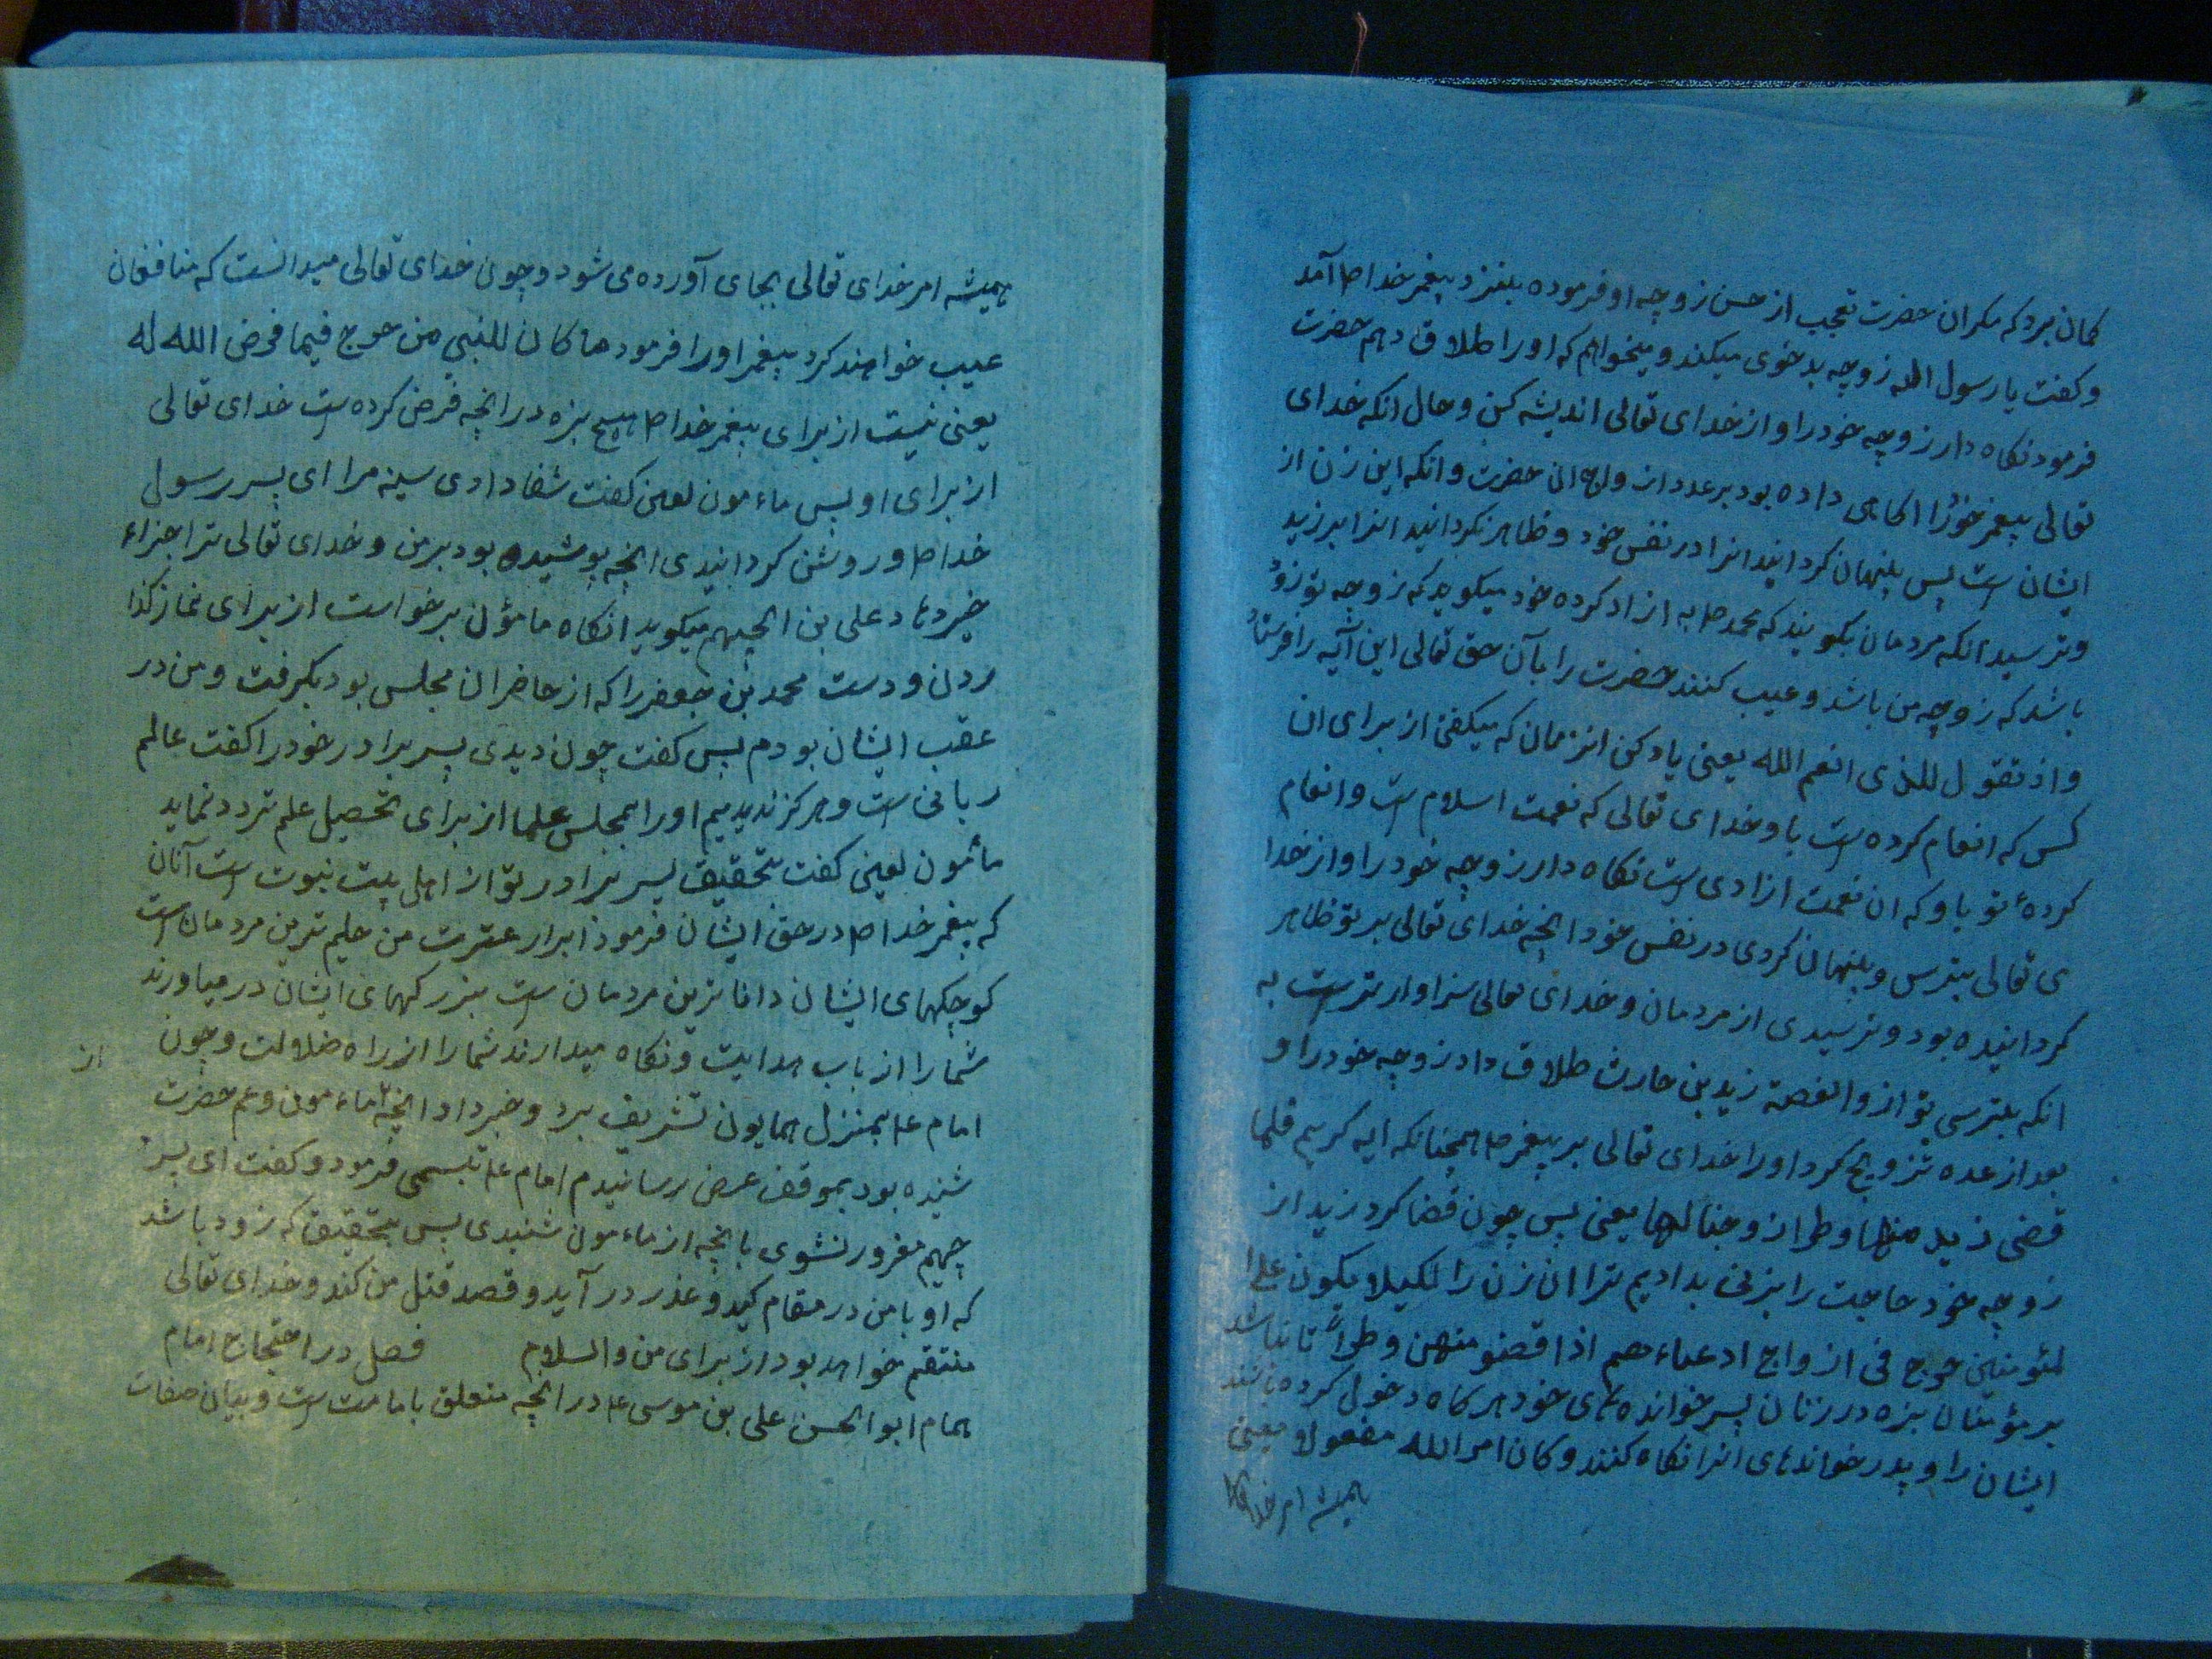 کمان برد که مکران حضرت تعجب از حسن زوجه او فرموده بنزد پیغمر خدا ص آمد
وکفت یا رسول الله زوجه بدخوی میکند ومیخواهم که اورا طلاق دهم حضرت
فرمود نکاه دار زوجه خودرا واز خدای تعالی اندیشه کن وحال انکه خدای
تعالی پیغمر خودرا اکاهی داده بود بر عدد ازواج ان حضرت وانکه این زن از
ایشان است پس پنهان کردانید انرا در نفس خود وظاهر نکردانید انرا بر زید
وترسید انکه مردمان بکویند که محمد ص به ازاد کرده خود میکوید که زوجه تو زود
باشد که زوجه من باشد وعیب کنند حضرت را بآن حق تعالی این آیه را فرستاد
واذ تقول للذی انعم الله یعنی یاد کن انزمان که میکفتی از برای ان
کس که انعام کرده است باو خدای تعالی که نعمت اسلام است وانعام
کردهٔ تو باو که ان نعمت ازادی است نکاه دار زوجه خودرا واز خدا
ی تعالی بترس وپنهان کردی در نفس خود انچه خدای تعالی بر تو ظاهر
کردانیده بود وترسیدی از مردمان وخدای تعالی سزاوارتر است به
انکه بترسی تو ازو القصه زید بن حارث طلاق داد زوجه خودرا و
بعد از عده تزویج کرد اورا خدای تعالی بر پیغمر ص همچنانکه ایه کریم فلما
قضی زید منها وطرا زوجناکها یعنی پس چون قضا کرد زید از
زوجه خود حاجت را بزنی بدادیم ترا ان زن را لکیلا یکون علی ا
لمؤمنین حرج فی ازواج ادعیاءهم اذا قضو منهن وطراً تا نباشد
بر مؤمنان بزه در زنان پسر خوانده های خود هر کاه دخول کرده باشند
ایشان را وپدر خواندهای انرا نکاه کنند وکان امر الله مفعولا یعنی
همیشه امر خدای
همیشه امر خدای تعالی بجای آورده می شود وچون خدای تعالی میدانست که منافقان
عیب خواهند کرد پیغمر اورا فرمود ما کان للنبی من حرج فیما فرض الله له
یعنی نیست از برای پیغمر خدا ص هیچ بزه در انچه فرض کرده است خدای تعالی
از برای او پس ماءمون لعین کفت شفا دادی سینه مرا ای پسر رسول
خدا ص وروشن کردانیدی انچه پوشیده بود بر من وخدای تعالی ترا جزاء
خیر دهاد علی بن الجهم میکوید انکاه مامؤن برخواست از برای نماز کذا
ردن ودست محمد بن جعفر را که از حاضران مجلس بود بکرفت ومن در
عقب ایشان بودم پس کفت چون دیدی پسر برادر خودرا کفت عالم
ربانی است وهرکز ندیدیم اورا بمجلس علما از برای تحصیل علم تردد نماید
مأمون لعین کفت بتحقیق پسر برادر تو از اهل بیت نبوت است آنان
که پیغمر خدا ص در حق ایشان فرمود ابرار عترت من حلیم ترین مردمان است
کوچکهای ایشان داناترین مردمان است بزرکهای ایشان در میاورند
شمارا از باب هدایت ونکاه میدارند شمارا از راه ضلالت وچون
از
امام ع بمنزل همایون تشریف برد وخبر داد انچه ماءمون وعم حضرت
شنیده بود بموقف عرض رسانیدم امام ع تبسمی فرمود وکفت ای پسر
جهم مغرور نشوی بانچه از ماءمون شنیدی پس بتحقیق که زود باشد
که او با من در مقام کید وغدر در آید وقصد قتل من کند وخدای تعالی
منتقم خواهد بود از برای من والسلام فصل در احتجاج امام
همام ابو الحسن علی بن موسی ع در انچه متعلق بامامت است وبیان صفات